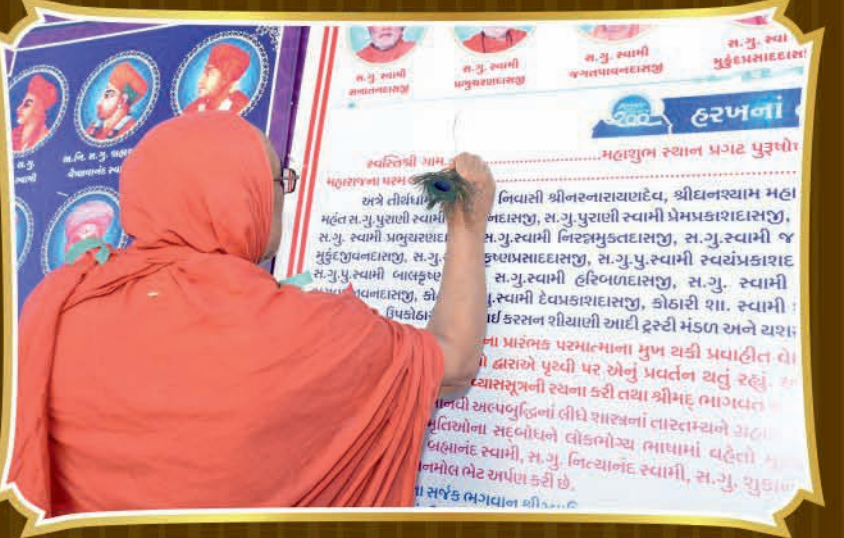 સ.ગુ. સ્વામી
સનાતનદાસજી
સ.ગુ. સ્વામી
પ્રભુચરણદાસજી
સ.ગુ. સ્વામી
જગતપાવનદાસજી
સ.ગુ. સ્વા
મુકુંદપ્રસાદદાસ
સ.ગુ.
સ્વામી
સ.નિ. સ.ગુ.
વૈષ્ણવાનંદ સ્વા
200
હરખનાં
સ્વસ્તિશ્રી ગામ..............................મહાશુભ સ્થાન પ્રગટ પુરૂષો
મહારાજના પરમ
અત્રે તીર્થધા નિવાસી શ્રીનરનારાયણદેવ, શ્રીઘનશ્યામ મહા
મહંત સ.ગુ.પુરાણી સ્વામી નદાસજી, સ.ગુ.પુરાણી સ્વામી પ્રેમપ્રકાશદાસજી,
સ.ગુ. સ્વામી પ્રભુચરણદા સ.ગુ.સ્વામી નિરન્નમુક્તદાસજી, સ.ગુ.સ્વામી જ
મુકુંદજીવનદાસજી, સ.ગુ. કૃષ્ણપ્રસાદદાસજી, સ.ગુ.પુ.સ્વામી સ્વયંપ્રકાશદ
સ.ગુ.પુ.સ્વામી બાલકૃષ્ણ સ.ગુ.સ્વામી હરિબળદાસજી, સ.ગુ. સ્વામી
વનદાસજી, કો .સ્વામી દેવપ્રકાશદાસજી, કોઠારી શા. સ્વામી
ઉપકોઠા ઈ કરસન શીયાણી આદી ટ્રસ્ટી મંડળ અને યશ
ના પ્રારંભક પરમાત્માના મુખ થકી પ્રવાહીત વે
દ્વારાએ પૃથ્વી પર એનું પ્રવર્તન થતું રહ્યું.
વ્યાસસૂત્રની રચના કરી તથા શ્રીમદ્ ભાગવત
માનવી અલ્પબુદ્ધિનાં લીધે શાસ્ત્રનાં તારતમ્યને
મૃતિઓના સદ્બોધને લોકભોગ્ય ભાષામાં વહેતો
બ્રહ્માનંદ સ્વામી, સ.ગુ. નિત્યાનંદ સ્વામી, સ.ગુ. શુકાન
નમોલ ભેટ અર્પણ કરી છે.
ના સર્જક ભગવાન